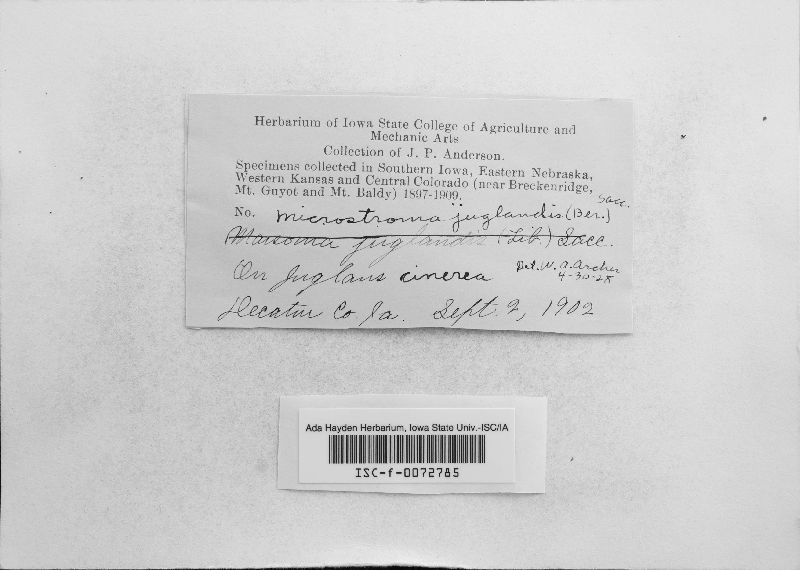 Herbarium of Iowa State College of Agriculture and
Mechanic Arts
Collection of J. P. Anderson.
Specimens collected in Southern Iowa, Eastern Nebraska,
Western Kansas and Central Colorado (near Breckenridge,
Mt. Guyot and Mt. Baldy) 1897-1909.
No. Microstroma juglandis (Ber.) Sacc.
Marsonia juglandis (Lib.) Sacc.
On Juglans cinerea
Det. W. A. Archer
4-30-28
Decatur Co. Ia. Sept. 2, 1902
Ada Hayden Herbarium, Iowa State Univ.-ISC/IA
ISC-f-0072785